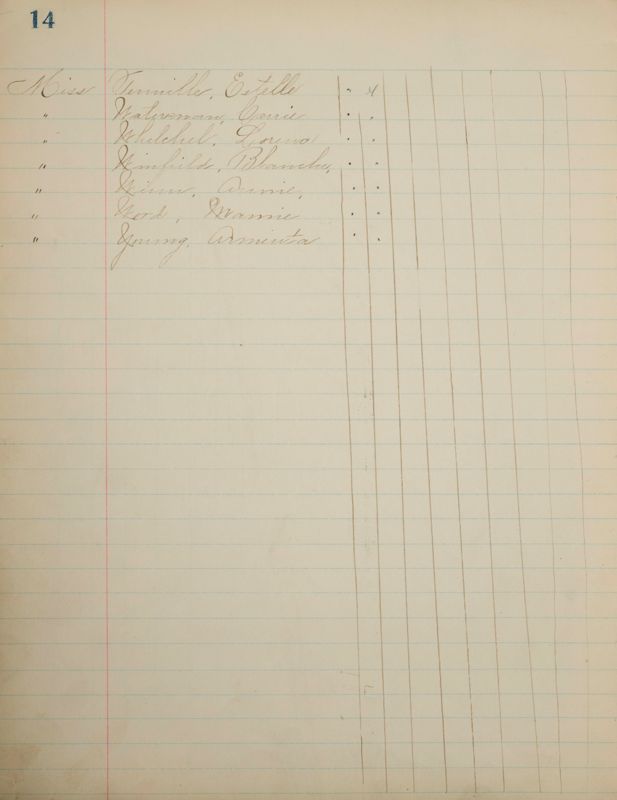 14
Miss Tennille, Estelle . x
" Waterman, . .
" Whelchel, . .
" Winfield, Blanche, . .
" Winn, Annie, . .
" Word, Nannie . .
" Young, Armenta . .